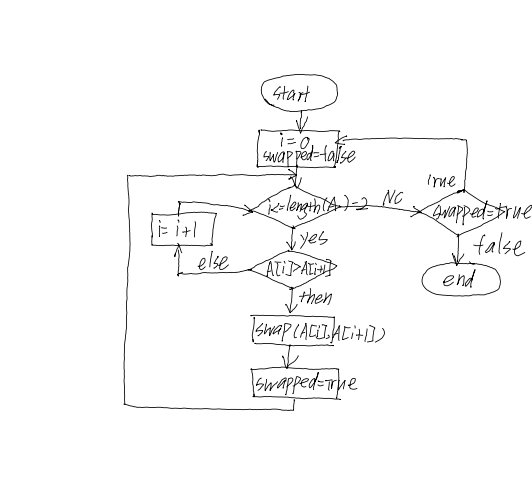 start
i=0
swapped=false
i<=length(A)-2
NO
swapped=true
True
false
end
yes
i=i+1
else
A[i]>A[i+1]
then
swap(A[i],A[i+1])
swapped=True